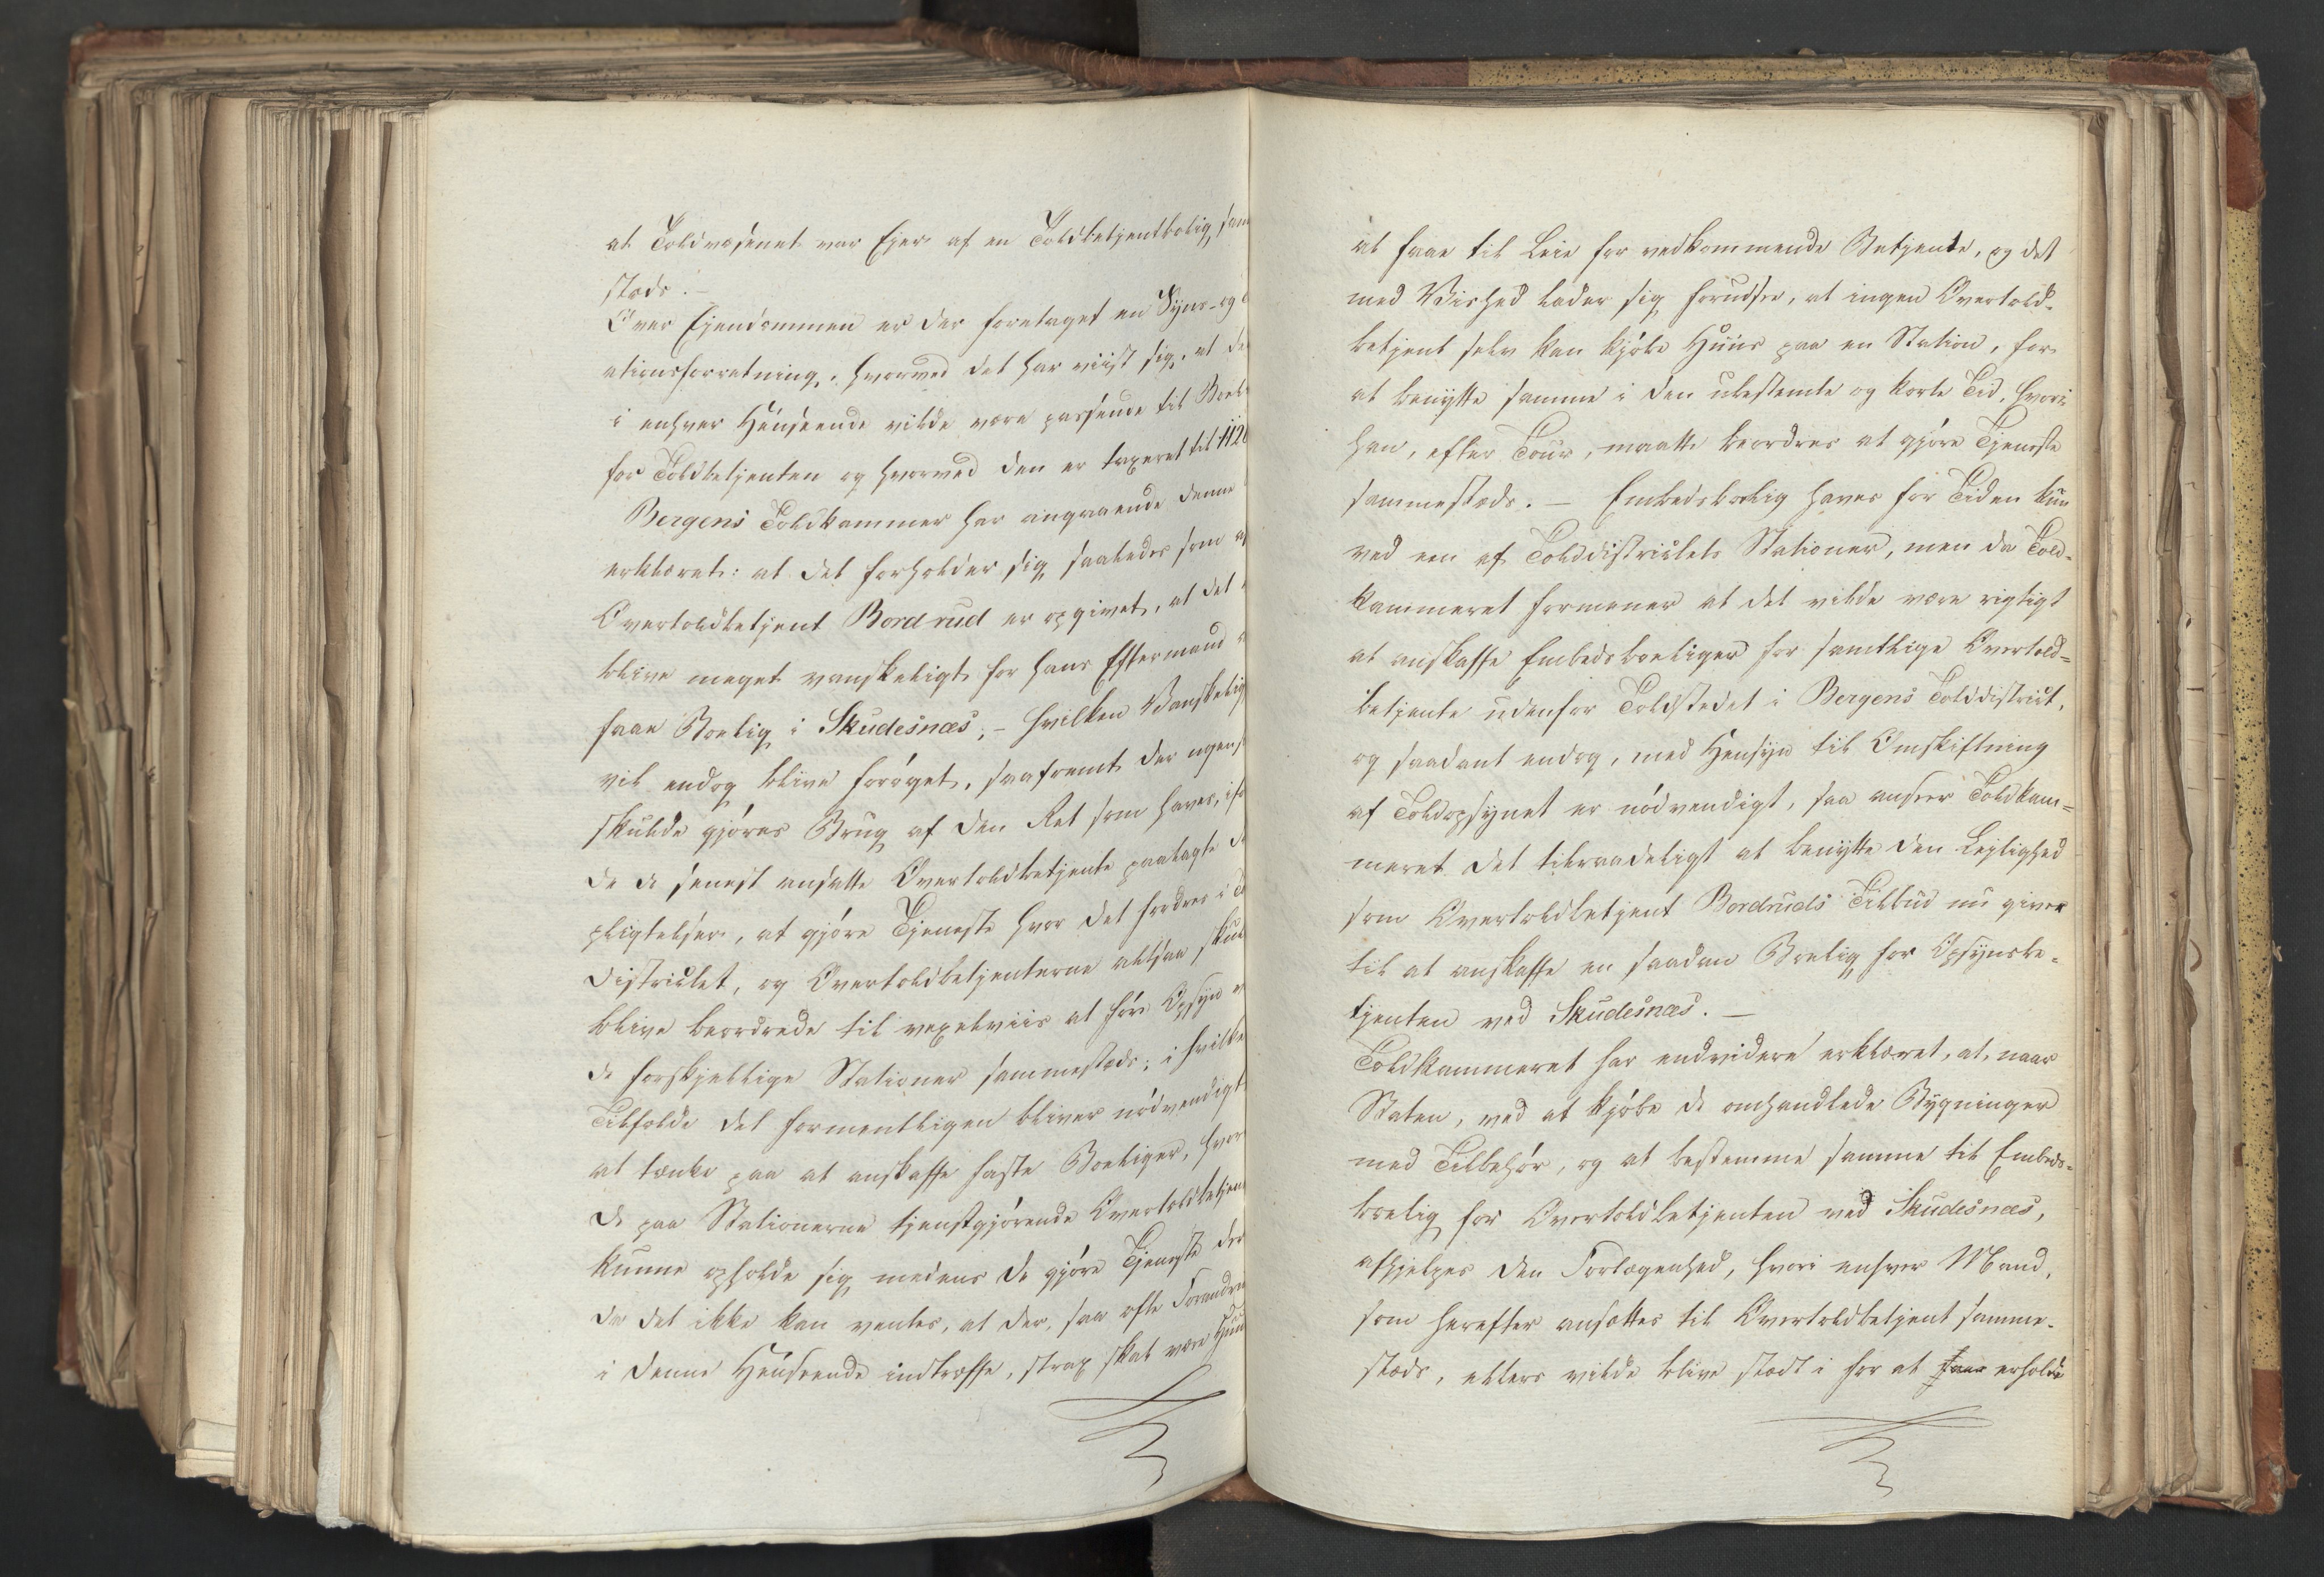 at Toldvæsenet var Ejer af en Toldbetjentbolig sam
steds. –
Over Ejendommen er der foretaget en Syns- og
ationsforretning, hvorved det har viist sig, at de
i enhver Henseende vilde være passende til Boel
for Toldbetjenten og hvorved den er taxeret til 1120
Bergens Toldkammer har angaaende denne
erklæret: at det forholder sig saaledes som af
Overtoldbetjent Bordrud er opgivet, at det
blive meget vanskeligt for hans Eftermand
faae Boelig i Skudesnæs, – hvilken Vanskelig
vil endog blive forøget, saafremt der ogens
skulde gjøres Brug af den Ret som haves, ifø
de de senest ansatte Overtoldbetjente paalagte
pligtelser, at gjøre Tjeneste hvor det fordres i To
districtet, og Overtoldbetjenterne altsaa skul
blive beordrede til vexelviis at føre Opsyn
de forskjellige Stationer sammesteds; i hvilke
Tilfælde det formentligen bliver nødvendigt
at tænke paa at anskaffe faste Boeliger, hvor
de paa Stationerne tjenstgjørende Overtoldbetjen
kunne opholde sig medens de gjøre Tjeneste der
da det ikke kan ventes, at der, saa ofte Forandre
i denne Henseende indtræffe, strax skal være Huu
at faae til Leie for vedkommende Betjente, og det
med Vished lader sig forudsee, at ingen Overtold-
betjent selv kan kjøbe Huus paa en Station, for
at benytte samme i den ubestemte og korte Tid, hvori
han, efter Tour, maatte beordres at gjøre Tjeneste
sammesteds. – Embedsboelig haves for Tiden kun
ved een af Tolddistrictets Stationer, men da Told-
kammeret formener at det vilde være rigtigt
at anskaffe Embedsboeliger for samtlige Overtold-
betjente udenfor Toldstedet i Bergens Tolddistrict,
og saadant endog, med Hensyn til Omskiftning
af Toldopsynet er nødvendigt, saa anseer Toldkam-
meret det tilraadeligt at benytte den Leilighed
som Overtoldbetjent Bordruds Tilbud nu giver
til at anskaffe en saadan Boelig for Opsynsbe-
tjenten ved Skudesnæs. –
Toldkammeret har endvidere erklæret, at, naar
Staten, ved at kjøbe de omhandlede Bygninger
med Tilbehør, og at bestemme samme til Embeds-
boelig for Overtoldbetjenten ved Skudesnæs,
afhjelpes den Forlegenhed, hvori enhver Mand,
som herefter ansættes til Overtoldbetjent samme-
steds, ellers vilde blive stedt i for at faae erholde